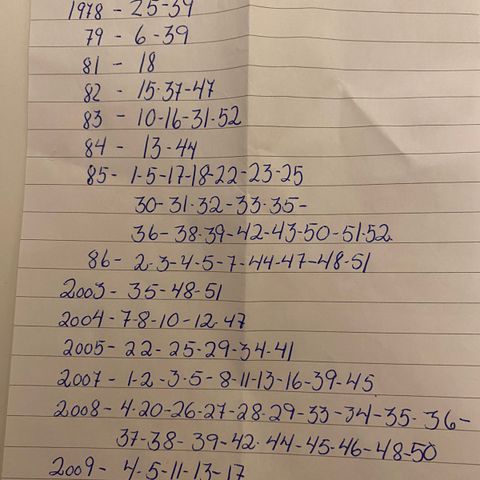 1978 - 25-34
79 - 6-39
81 - 18
82 - 15-37-47
83 - 10-16-31-52
84 - 13-44
85- 1-5-17-18-22-23-25
30-31-32-33-35-
36-38-39-42-43-50-51-52
86- 2-3-4-5-7-44-47-48-51
2003- 35-48-51
2004-7-8-10-12-47
2005-22-25-29-34-41
2007-1-2-3-5-8-11-13-16-39-45
2008-4-20-26-27-28-29-33-34-35-36-
37-38-39-42-44-45-46-48-50
2009- 4-5-11-13-17